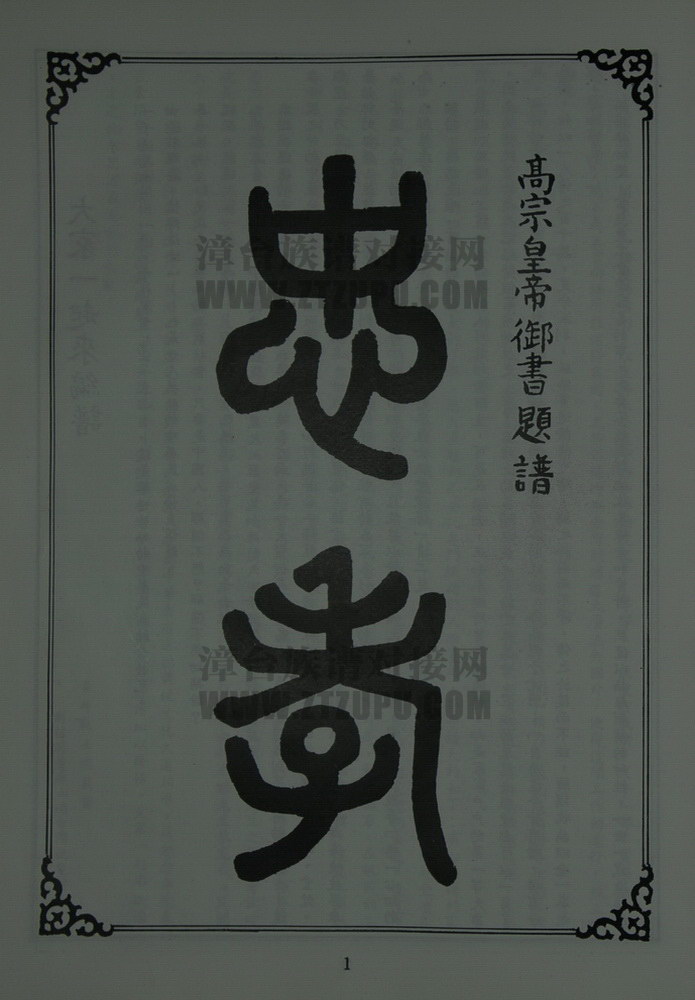 高宗皇帝御書題譜
忠孝
漳台族谱对接网
WWW.ZTZUPU.COM
漳台族谱对接网
WWW.ZTZUPU.COM
1